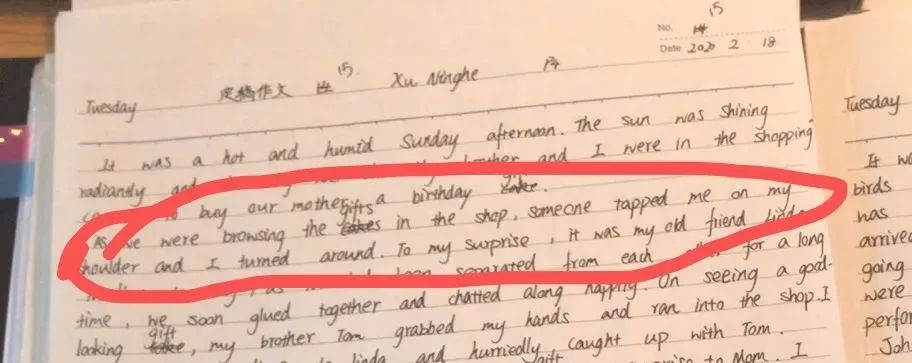 15
No. 14
Date 2020 2 18
15.
Tuesday 定稿作文 14 Xu Ninghe
It was a hot and humid Sunday afternoon. The sun was shining
radiantly and brother and I were in the shopping
to buy our mother a birthday gift.
As we were browsing the gifts in the shop, someone tapped me on my
shoulder and I turned around. To my surprise, it was my old friend Linda
separated from each for a long
time, we soon glued together and chatted along happily. On seeing a good-
looking gift, my brother Tom grabbed my hands and ran into the shop. I
linda and hurriedly caught up with Tom.
to Mom. I
Tuesday
It
birds
has
arrive
going
were
perfor
Joh